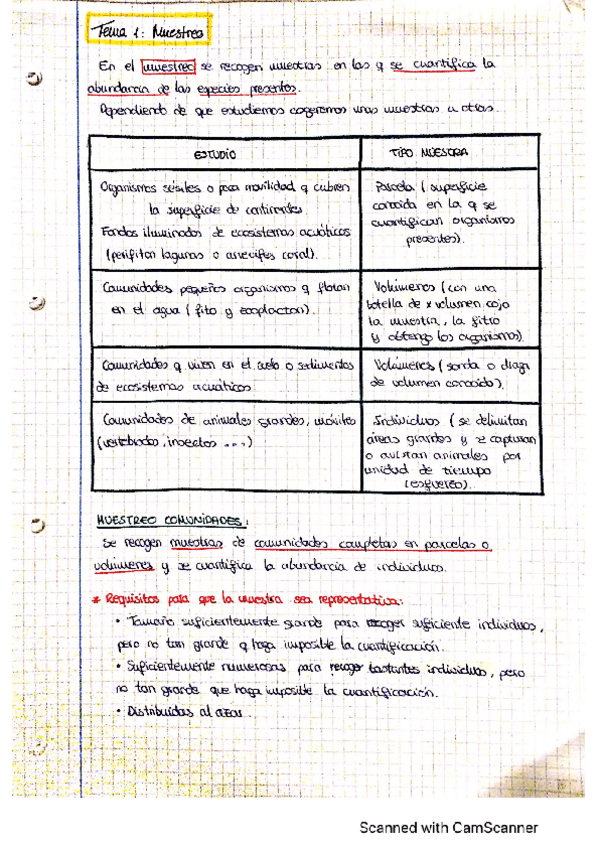 Tema 1: Muestreo
En el muestreo se recogen muestras en las q se cuantifica la
abundancia de las especies presentes.
Dependiendo de que estudiemos cogeremos unas muestras u otras.
ESTUDIO
TIPO MUESTRA
Organismos sésiles o poca movilidad q cubren
la superficie de continentes.
Fondos iluminados de ecosistemas acuáticos
(perifiton lagunas o arrecifes coral).
Parcela (superficie
conocida en la q se
cuantifican organismos
presentes).
Comunidades pequeños organismos q flotan
en el agua (fito y zooplacton).
Volúmenes (con una
botella de x volumen cojo
la muestra, la filtro
y obtengo los organismos)
Comunidades q viven en el suelo o sedimentos
de ecosistemas acuáticos
Volúmenes (sonda o draga
de volumen conocido).
Comunidades de animales grandes, móviles
(vertebrados, insectos ...)
Individuos (se delimitan
áreas grandes y se capturan
o avistan animales por
unidad de tiempo
(esfuerzo).
MUESTREO COMUNIDADES:
Se recogen muestras de comunidades completas en parcelas o
volúmenes y se cuantifica la abundancia de individuos.
* Requisitos para que la muestra sea representativa:
• Tamaño suficientemente grande para recoger suficiente individuos,
pero no tan grande q haga imposible la cuantificación.
• Suficientemente numerosas para recoger bastantes individuos, pero
no tan grande que haga imposible la cuantificación.
• Distribuidas al azar.
Scanned with CamScanner